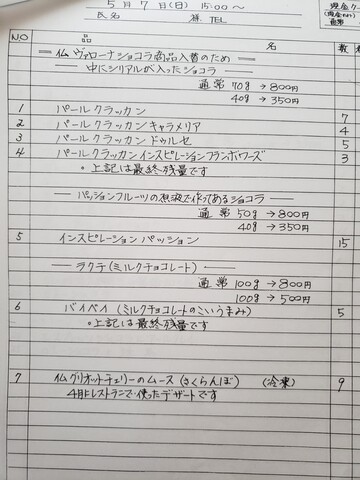 5月7日(日) 15:00〜
氏名 様 TEL
現金
NO 品 名 数
仏 ヴァローナショコラ商品入替のため
中にシリアルが入ったショコラ
通常 70g→800円
40g→350円
1 パールクラッカン 7
2 パールクラッカンキャラメリア 4
3 パールクラッカン ドゥルセ 5
4 パールクラッカンインスピレーションフランボワーズ 3
○上記は最終残量です
パッションフルーツの煮液で作ってあるショコラ
通常 50g→800円
40g→350円
5 インスピレーション パッション 15
ラクテ(ミルクチョコレート)
通常 100g→800
100g→500円
6 バイベイ (ミルクチョコレートのこいうまみ) 5
○上記は最終残量です
7 仏グリオットチェリーのムース (さくらんぼ) (冷凍) 9
4月レストランで使ったデザートです